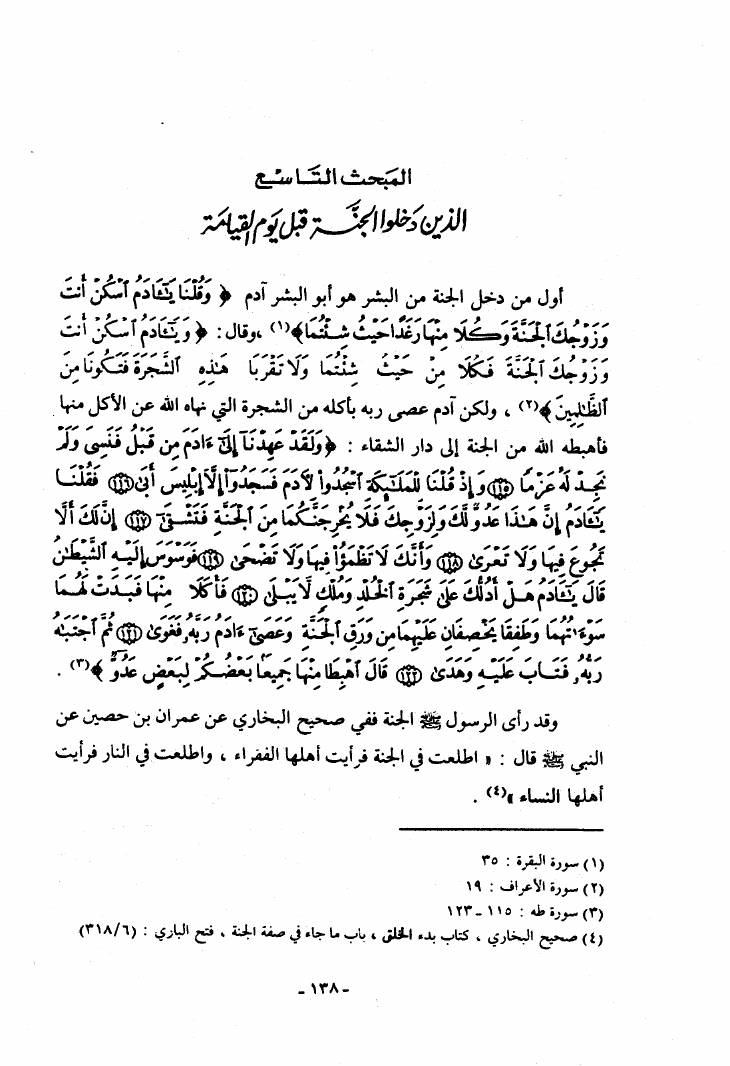 المبحث التاسع
الذين دخلوا الجنة قبل يوم القيامة
أول من دخل الجنة من البشر هو أبو البشر آدم ﴿ وَقُلْنَا يَـٰٓـَٔادَمُ ٱسْكُنْ أَنتَ
وَزَوْجُكَ ٱلْجَنَّةَ وَكُلَا مِنْهَا رَغَدًا حَيْثُ شِئْتُمَا﴾(١) ، وقال : ﴿ وَيَـٰٓـَٔادَمُ ٱسْكُنْ أَنتَ
وَزَوْجُكَ ٱلْجَنَّةَ فَكُلَا مِنْ حَيْثُ شِئْتُمَا وَلَا تَقْرَبَا هَـٰذِهِ ٱلشَّجَرَةَ فَتَكُونَا مِنَ
ٱلظَّـٰلِمِينَ ﴾(٢) ، ولكن آدم عصى ربه بأكله من الشجرة التي نهاه الله عن الأكل منها
فأهبطه الله من الجنة إلى دار الشقاء : ﴿وَلَقَدْ عَهِدْنَآ إِلَىٰٓ ءَادَمَ مِن قَبْلُ فَنَسِىَ وَلَمْ
نَجِدْ لَهُۥ عَزْمًا ﴿١١٥﴾ وَإِذْ قُلْنَا لِلْمَلَـٰٓئِكَةِ ٱسْجُدُوا۟ لِـَٔادَمَ فَسَجَدُوٓا۟ إِلَّآ إِبْلِيسَ أَبَىٰ ﴿١١٦﴾ فَقُلْنَا
يَـٰٓـَٔادَمُ إِنَّ هَـٰذَا عَدُوٌّ لَّكَ وَلِزَوْجِكَ فَلَا يُخْرِجَنَّكُمَا مِنَ ٱلْجَنَّةِ فَتَشْقَىٰٓ ﴿١١٧﴾ إِنَّ لَكَ أَلَّا
تَجُوعَ فِيهَا وَلَا تَعْرَىٰ ﴿١١٨﴾ وَأَنَّكَ لَا تَظْمَؤُا۟ فِيهَا وَلَا تَضْحَىٰ ﴿١١٩﴾ فَوَسْوَسَ إِلَيْهِ ٱلشَّيْطَـٰنُ
قَالَ يَـٰٓـَٔادَمُ هَلْ أَدُلُّكَ عَلَىٰ شَجَرَةِ ٱلْخُلْدِ وَمُلْكٍ لَّا يَبْلَىٰ ﴿١٢٠﴾ فَأَكَلَا مِنْهَا فَبَدَتْ لَهُمَا
سَوْءَٰتُهُمَا وَطَفِقَا يَخْصِفَانِ عَلَيْهِمَا مِن وَرَقِ ٱلْجَنَّةِ وَعَصَىٰٓ ءَادَمُ رَبَّهُۥ فَغَوَىٰ ﴿١٢١﴾ ثُمَّ ٱجْتَبَـٰهُ
رَبُّهُۥ فَتَابَ عَلَيْهِ وَهَدَىٰ ﴿١٢٢﴾ قَالَ ٱهْبِطَا مِنْهَا جَمِيعًۢا بَعْضُكُمْ لِبَعْضٍ عَدُوٌّ ﴾(٣) .
وقد رأى الرسول ﷺ الجنة ففي صحيح البخاري عن عمران بن حصين عن
النبي ﷺ قال : « اطلعت في الجنة فرأيت أهلها الفقراء ، واطلعت في النار فرأيت
أهلها النساء »(٤) .
(١) سورة البقرة : ٣٥
(٢) سورة الأعراف : ١٩
(٣) سورة طه : ١١٥ ــ ١٢٣
(٤) صحيح البخاري ، كتاب بدء الخلق ، باب ما جاء في صفة الجنة ، فتح الباري : (٣١٨/٦)
ــ ١٣٨ ــ